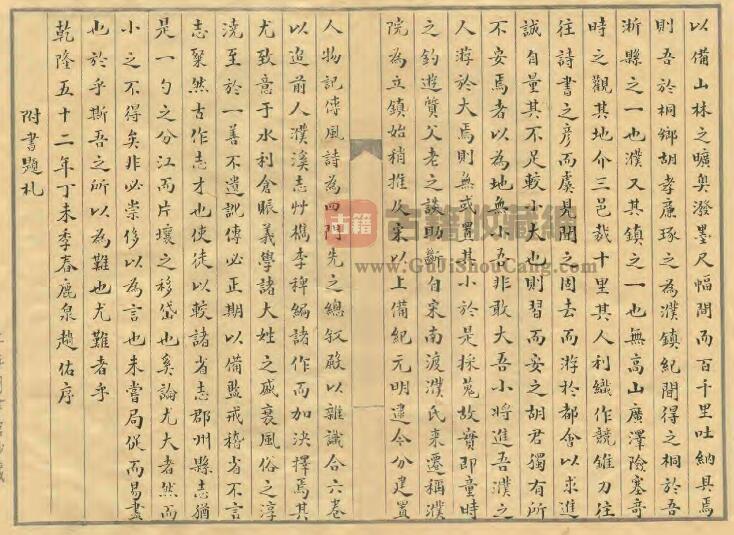 以備山林之曠奧潑墨尺幅間而百千里吐納具焉
則吾於桐鄉胡孝廉琢之為濮鎮紀間得之桐於吾
浙縣之一也濮又其鎮之一也無高山廣澤險塞奇
時之觀其地介三邑裁十里其人利織作競錐刀注
往詩書之彥而虞見聞之周去而游於都會以求進
誠自量其不足較小大也則習而安之胡君獨有所
不安焉者以為地無小吾非敢大吾小將進吾濮之
人游於大焉則無或置其小於是採蒐故實即童時
之釣遊質父老之談助斷自宋南渡濮氏來遷稱濮
院為立鎮始稍推及宋以上備紀元明逮今分建置
人物記傳風詩為四門先之總敘殿以雜識合六卷
以追前人濮溪志艸檇李稗編諸作而加決擇焉其
尤致意于水利倉賑義學諸大姓之盛衰風俗之淳
澆至於一善不遺訓傳必正期以備監戒稽省不言
志粲然古作志才也使徒以較諸省志郡州縣志猶
是一勺之分江而片壤之移岱也奚論尤大者然而
小之不得矣非必崇侈以為言也未嘗局促而易盡
也於乎斯吾之所以為難也尤難者乎
乾隆五十二年丁未季春鹿泉趙佑序
附書題札
古籍
古籍收藏網
www.GuJiShouCang.com